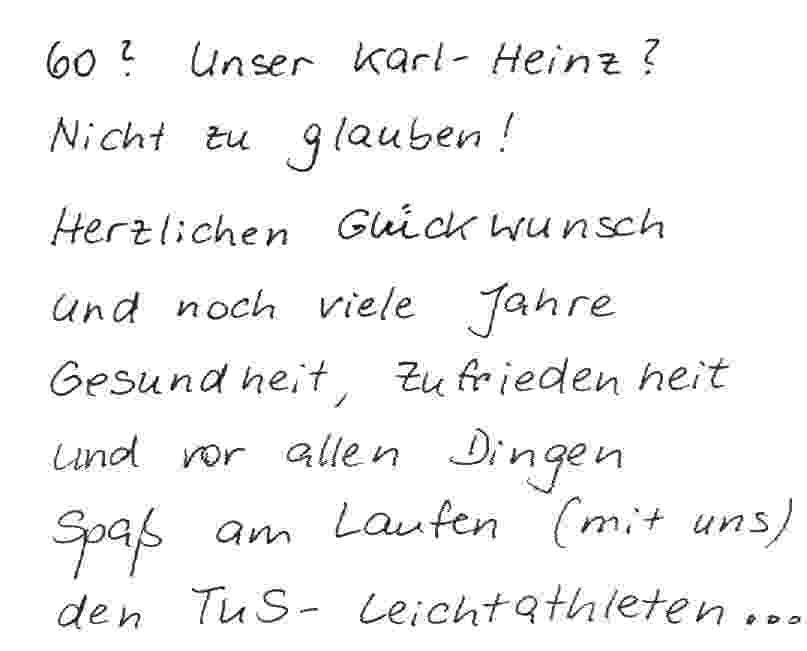 60? Unser Karl-Heinz?
Nicht zu glauben!
Herzlichen Glückwunsch
und noch viele Jahre
Gesundheit, Zufriedenheit
und vor allen Dingen
Spaß am Laufen (mit uns)
den TuS-Leichtathleten....